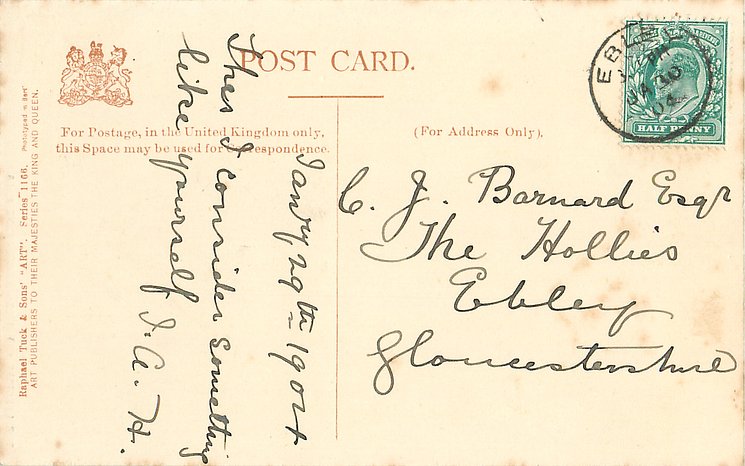 POST CARD.
For Postage, in the United Kingdom only,
this Space may be used for Correspondence.
(For Address Only).
Raphael Tuck & Sons' "ART". Series 1166. Phototyped in
ART PUBLISHERS TO THEIR MAJESTIES THE KING AND QUEEN.
Jany, 29th - 1904
This I consider something
like yourself J. A. H.
EBLEY
JA 30
04
HALF PENNY
C. J. Barnard Esqr
The Hollies
Ebley
Gloucestershire